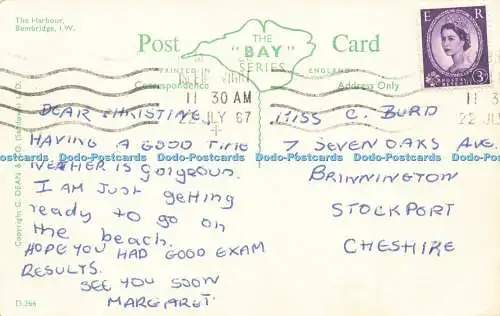 The Harbour,
Bembridge, I.W.
Post Card
THE
"BAY"
SERIES
PRINTED IN ENGLAND
Correspondence
Address Only
E R
POSTAGE
REVENUE
3D
11 30 AM
22 JLY 67
11 3
22 JL
DEAR CHRISTINE
HAVING A GOOD TIME
WEATHER IS GORGEOUS.
I AM JUST getting
ready to go on
the beach.
HOPE YOU HAD GOOD EXAM
RESULTS.
SEE YOU SOON
MARGARET.
MISS C. BURD
7 SEVENOAKS AVE.
BRINNINGTON
STOCKPORT
CHESHIRE
Dodo-Postcards Dodo-Postcards Dodo-Postcards Dodo-Postcards Dodo-Postcards Dodo-Postcards
Copyright C. DEAN & CO. (Sandown) LTD.
D.266